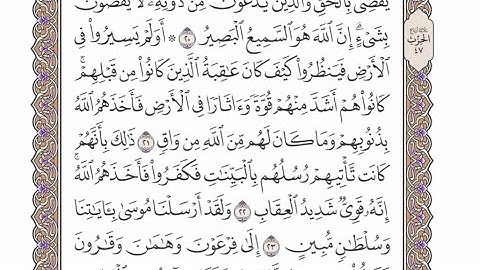 يَقْضِى بِٱلْحَقِّ وَٱلَّذِينَ يَدْعُونَ مِن دُونِهِۦ لَا يَقْضُونَ
بِشَىْءٍ ۗ إِنَّ ٱللَّهَ هُوَ ٱلسَّمِيعُ ٱلْبَصِيرُ ٢٠ ۞ أَوَلَمْ يَسِيرُوا۟ فِى
ٱلْأَرْضِ فَيَنظُرُوا۟ كَيْفَ كَانَ عَٰقِبَةُ ٱلَّذِينَ كَانُوا۟ مِن قَبْلِهِمْ ۚ
كَانُوا۟ هُمْ أَشَدَّ مِنْهُمْ قُوَّةً وَءَاثَارًا فِى ٱلْأَرْضِ فَأَخَذَهُمُ ٱللَّهُ
بِذُنُوبِهِمْ وَمَا كَانَ لَهُم مِّنَ ٱللَّهِ مِن وَاقٍ ٢١ ذَٰلِكَ بِأَنَّهُمْ
كَانَت تَّأْتِيهِمْ رُسُلُهُم بِٱلْبَيِّنَٰتِ فَكَفَرُوا۟ فَأَخَذَهُمُ ٱللَّهُ ۚ
إِنَّهُۥ قَوِىٌّ شَدِيدُ ٱلْعِقَابِ ٢٢ وَلَقَدْ أَرْسَلْنَا مُوسَىٰ بِـَٔايَٰتِنَا
وَسُلْطَٰنٍ مُّبِينٍ ٢٣ إِلَىٰ فِرْعَوْنَ وَهَٰمَٰنَ وَقَٰرُونَ
الحزب
٤٧